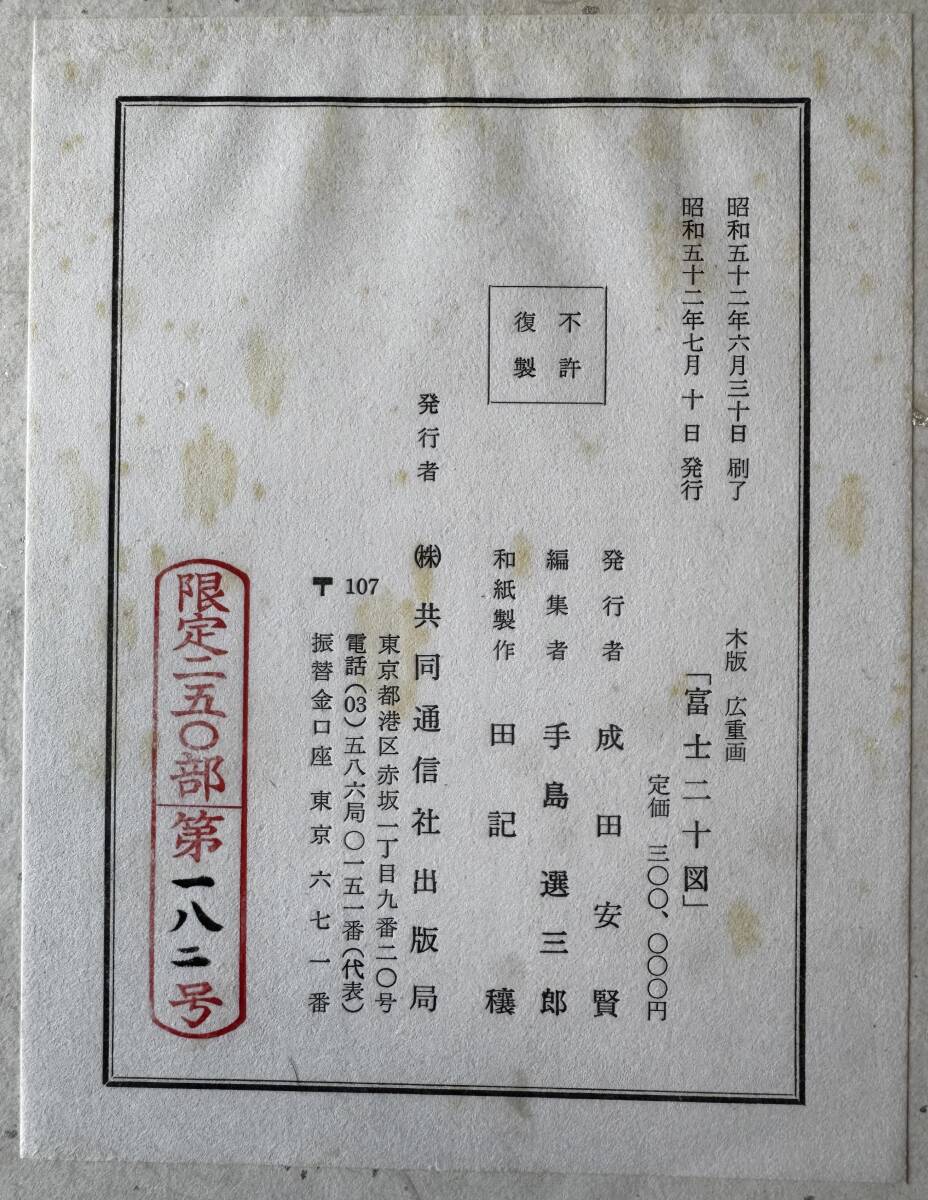 昭和五十二年六月三十日 刷了
昭和五十二年七月 十 日 発行
木版 広重画
「富士二十図」
定価 三〇〇、〇〇〇円
不許
復製
発行者 成田安賢
編集者 手島選三郎
和紙製作 田記穣
発行者 ㈱共同通信社出版局
東京都港区赤坂一丁目九番二〇号
〒107 電話(03)五八六局〇一五一番(代表)
振替金口座 東京六七一番
限定二五〇部 第一八二号